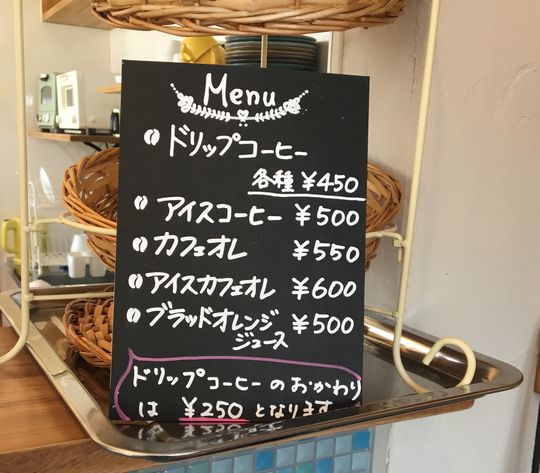 Menu
ドリップコーヒー
各種 ¥450
アイスコーヒー ¥500
カフェオレ ¥550
アイスカフェオレ ¥600
ブラッドオレンジ ¥500
ジュース
ドリップコーヒーのおかわり
は ¥250 となります